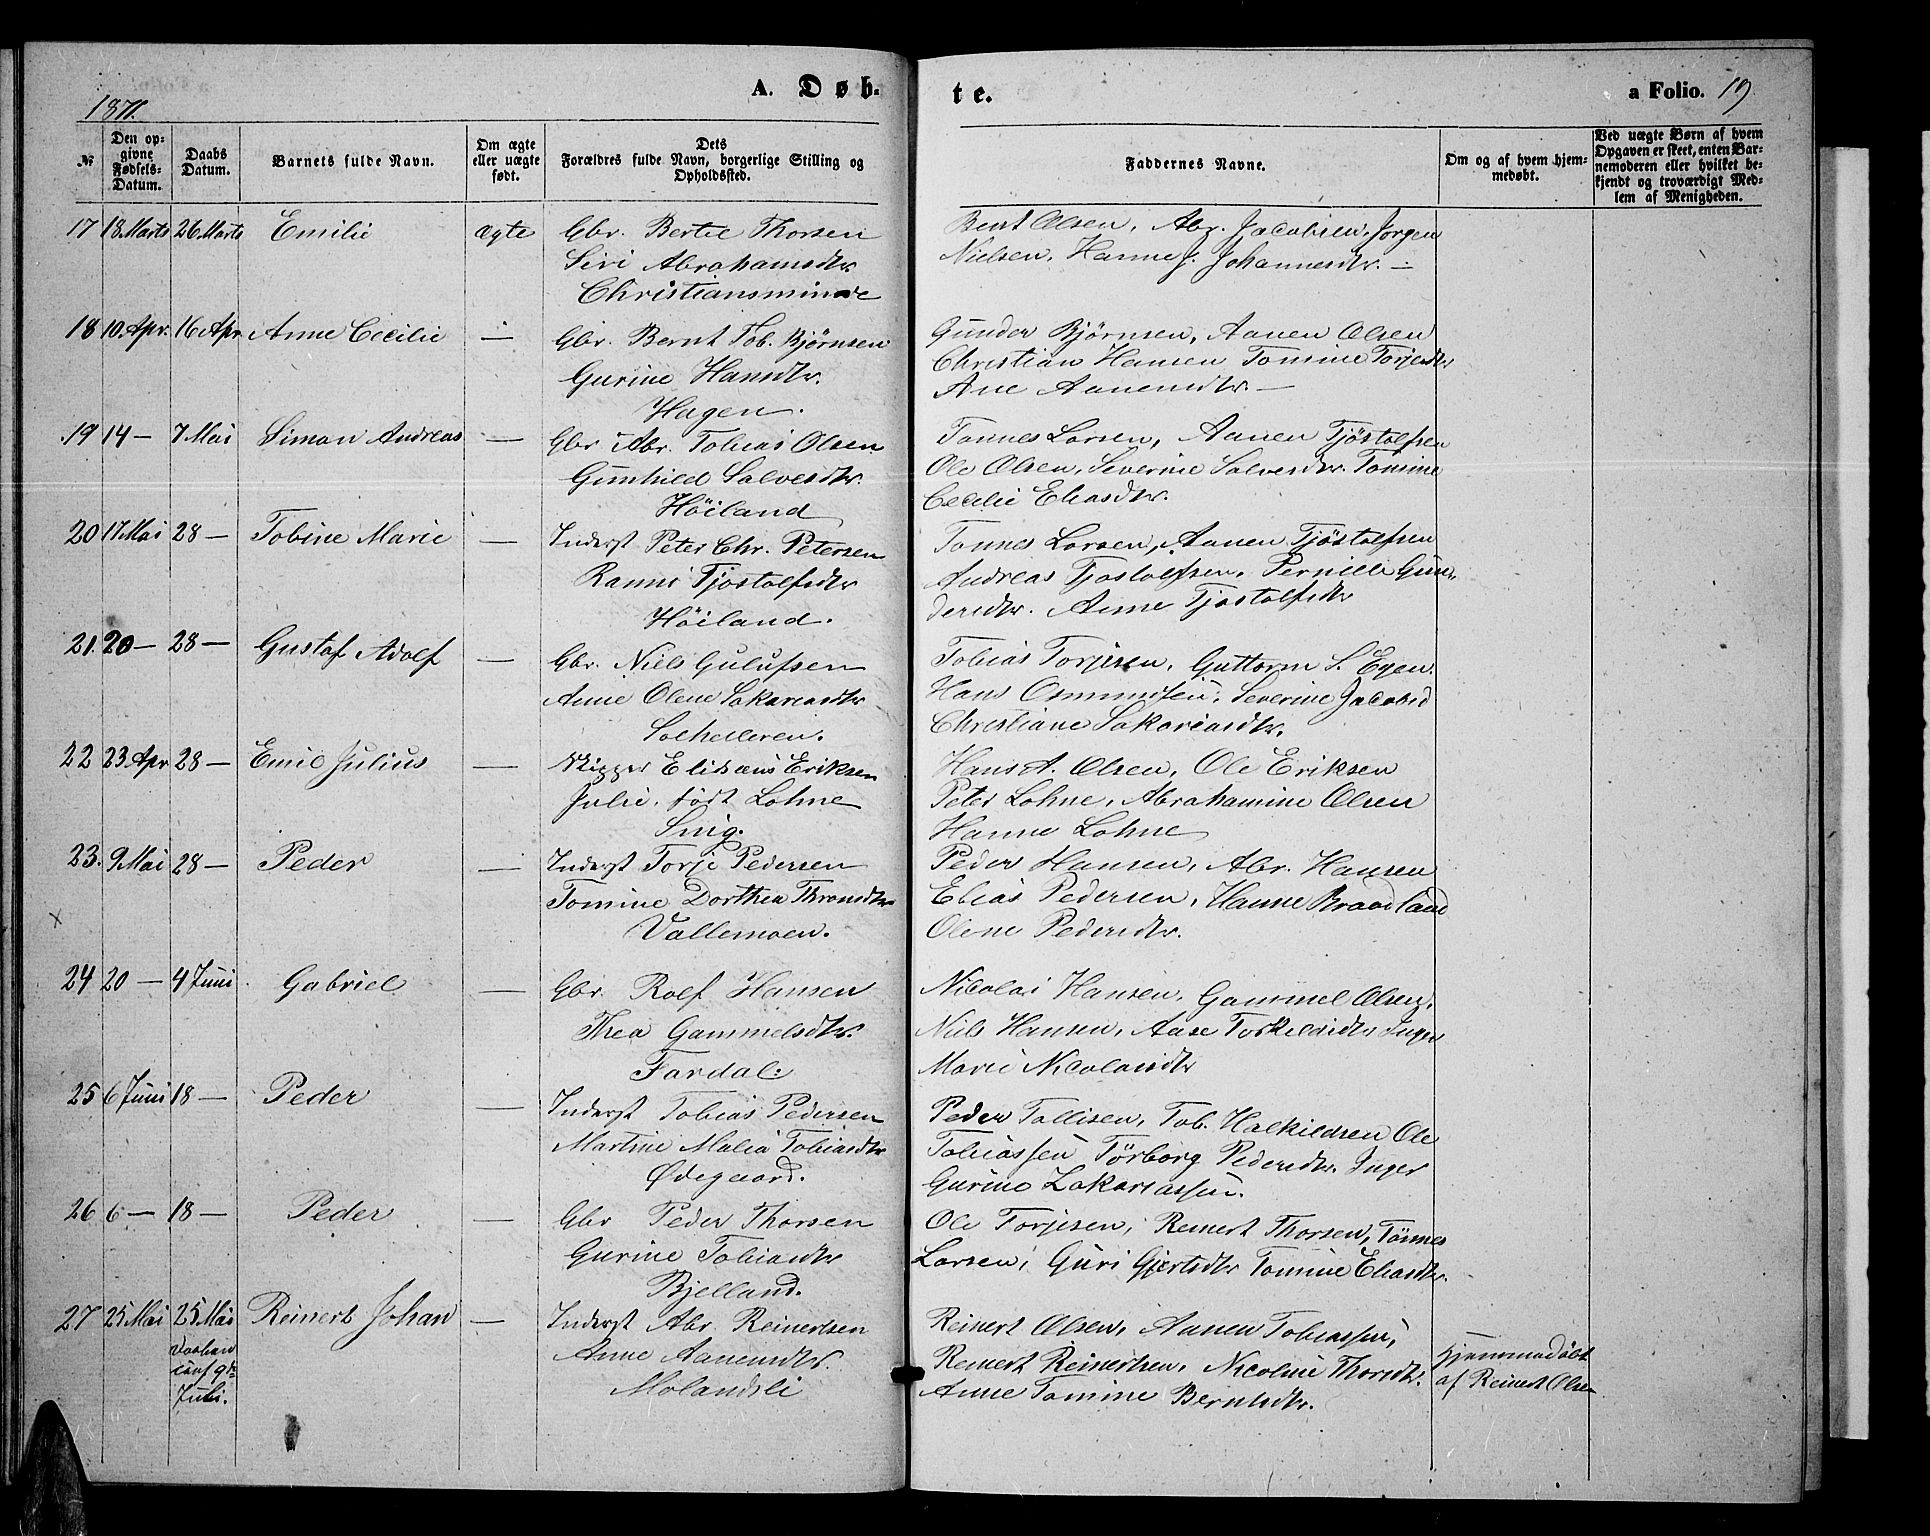 1871.
A. Døb-
te.
a Folio. 19
№
Den op-
givne
Fødsels-
Datum.
Daabs
Datum.
Barnets fulde Navn.
Om ægte
eller uægte
født.
Dets
Forældres fulde Navn, borgerlige Stilling og
Opholdssted.
Faddernes Navne.
Om og af hvem hjem-
medøbt.
Ved uægte Børn af hvem
Opgaven er skeet, enten Bar-
nemoderen eller hvilket be-
kjendt og troværdigt Med-
lem af Menigheden.
17 18 Marts 26 Marts Emilie ægte Gbr. Bertil Thorsen
Siri Abrahamsdtr
Christiansminde
Bent Olsen, Abr. Jacobsen, Jørgen
Nielsen, Hanne J. Johannesdtr. —
18 10. Apr. 16 Apr Anne Cecilie — Gbr. Bernt Tob. Bjørnsen
Gurine Hansdtr.
Hagen.
Gunder Bjørnsen, Aanen Olsen
Christian Hansen Tomine Torjesdtr
Ane Aanensdtr. —
19 14 — 7 Mai Simon Andreas — Gbr Abr. Tobias Olsen
Gunhild Salvesdtr.
Høiland
Tønnes Larsen, Aanen Tjøstolfsen
Ole Olsen, Severine Salvesdtr. Tomine
Cecilie Eliasdtr.
20 17 Mai 28 — Tobine Marie — Inderst Peter Chr. Petersen
Ranni Tjøstolfsdtr
Høiland.
Tønnes Larsen, Aanen Tjøstolfsen
Andreas Tjøstolfsen, Pernille Gun-
dersdtr. Anne Tjøstolfsdtr
21. 20 — 28 — Gustaf Adolf — Gbr. Niels Gulufsen
Anne Olene Sakariasdtr
Solhelleren.
Tobias Torjesen, Guttorm S. Egen.
Hans Osmundsen, Severine Jacobsd
Christiane Sakariasdtr.
22 23 Apr 28 — Emil Julius — Skipper Elisæus Eriksen
Julie, født Lohne
Snig.
Hans A. Olsen, Ole Eriksen
Peter Lohne, Abrahamine Olsen
Hanne Lohne
23. 9 Mai 28 — Peder — Inderst Torje Pedersen
Tomine Dorthea Thronsdtr
Vallemoen.
Peder Hansen, Abr. Hansen
Elias Pedersen, Hanne Braadland
Olene Pedersdtr.
x
24 20 — 4 Juni Gabriel — Gbr. Rolf Hansen
Thea Gammelsdtr.
Fardal.
Nicolai Hansen, Gammel Olsen,
Niels Hansen, Aase Torkelsdtr Inger
Marie Nicolaisdtr
25 6 Juni 18 — Peder — Inderst Tobias Pedersen
Martine Malia Tobiasdtr
Ødegaard.
Peder Tallisen, Tob. Halkildsen Ole
Tobiassen Törborg Pedersdtr. Inger
Gurine Zakariassen.
26 6 — 18 — Peder — Gbr Peder Thorsen
Gurine Tobiasdtr
Bjelland.
Ole Torjesen, Reinert Thorsen, Tönnes
Larsen, Guri Gjertsdtr Tomine Eliasdtr.
27 25 Mai 25 Mai Reinert Johan — Inderst Abr. Reinertsen
Daaben
conf 9de
Juli.
Anne Aanensdtr.
Molandsli
Reinert Olsen, Aanen Tobiassen,
Reinert Reinertsen, Nicoline Thorsdtr.
Anne Tomine Berntsdtr.
Hjemmedøbt
af Reinert Olsen